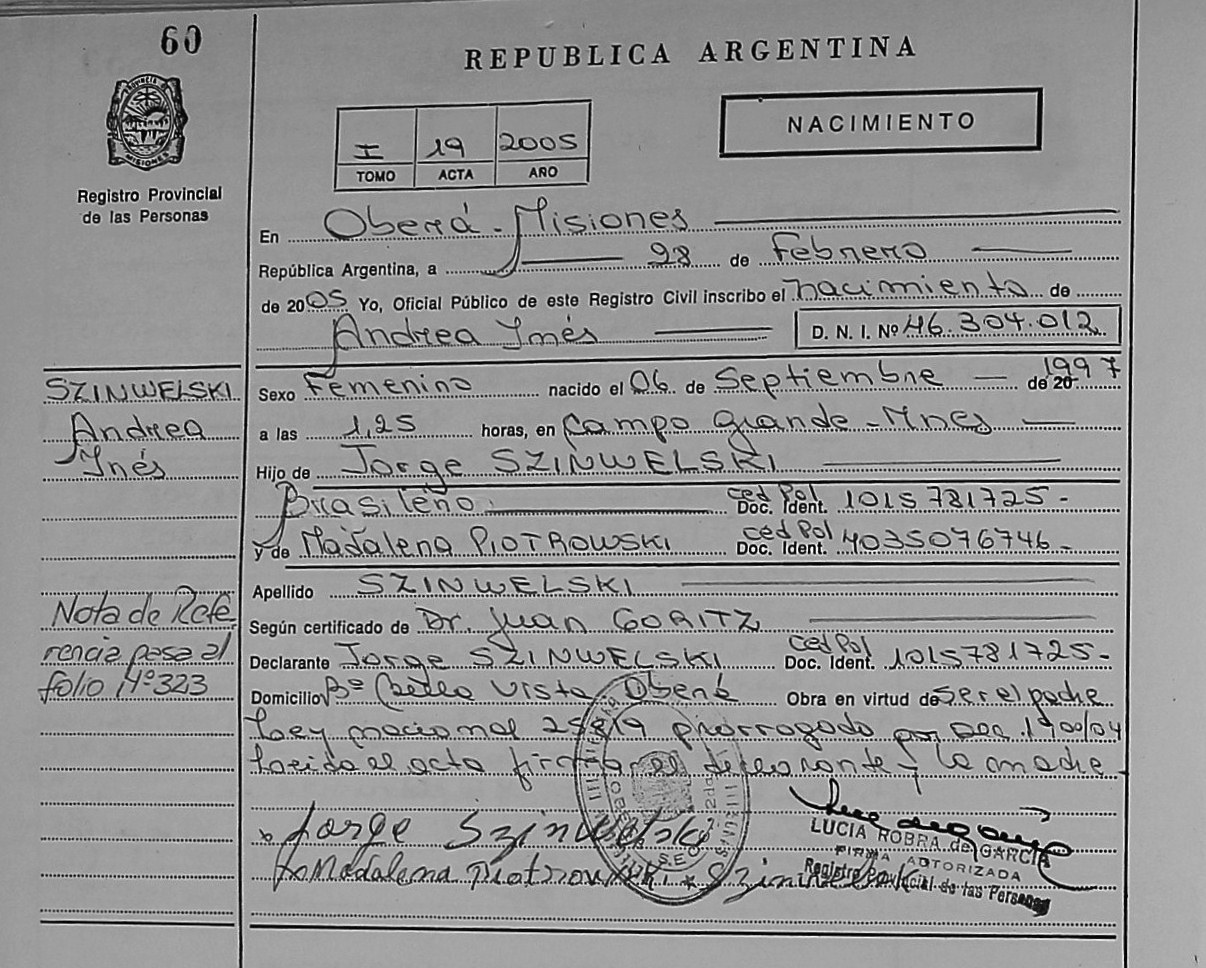 60
REPUBLICA ARGENTINA
PROVINCIA D
MISIONES
Registro Provincial
de las Personas
I 19 2005
TOMO ACTA AÑO
NACIMIENTO
En Oberá - Misiones
República Argentina, a 28 de Febrero
de 2005 Yo, Oficial Público de este Registro Civil inscribo el nacimiento de
Andrea Inés D. N. I. Nº 46.304.012
SZINWELSKI
Andrea
Inés
Sexo Femenino nacido el 06 de Septiembre de 20 1997
a las 1,25 horas, en Campo Grande - Mnes
Hijo de Jorge SZINWELSKI
Brasileño Ced Pol Doc. Ident. 1015781725-
y de Madalena PIOTROWSKI Ced Pol Doc. Ident. 4035076746-
Apellido SZINWELSKI
Según certificado de Dr. Juan GORITZ
Declarante Jorge SZINWELSKI Ced Pol Doc. Ident. 1015781725-
Domicilio Bº Bella Vista Oberá Obra en virtud de ser el padre
Ley nacional 25819 prorrogado por Dec. 1900/04
Leída el acta firman el declarante y la madre
Nota de Refe-
rencia pasa al
folio Nº 323
Jorge Szinwelski
Madalena Piotrowski Szinwelski
LUCIA ROBRA de GARCIA
FIRMA AUTORIZADA
Registro Provincial de las Personas